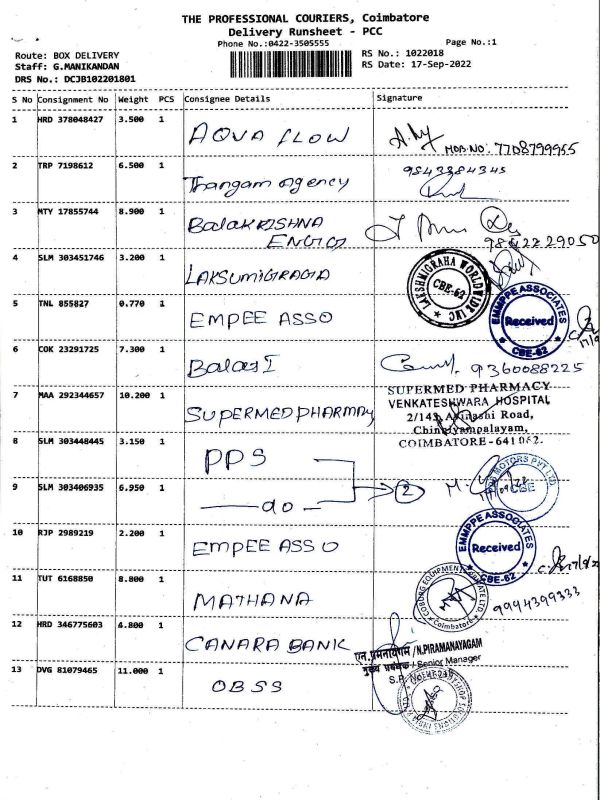 THE PROFESSIONAL COURIERS, Coimbatore
Delivery Runsheet - PCC
Phone No.:0422-3505555
Page No.:1
Route: BOX DELIVERY
Staff: G.MANIKANDAN
DRS No.: DCJB102201801
RS No.: 1022018
RS Date: 17-Sep-2022
S No Consignment No Weight PCS Consignee Details Signature
1 HRD 378048427 3.500 1 AQUA FLOW
MOB.NO: 7708799955
2 TRP 7198612 6.500 1 Thangam agency
9843384345
3 MTY 17855744 8.900 1 BalaKRISHNA
ENGG
9842229050
4 SLM 303451746 3.200 1 LAKSUMIGRAGA
LAKSHMIGRAHA WORLDWIDE INC
CBE-62
5 TNL 855827 0.770 1 EMPEE ASSO
EMMPPE ASSOCIATES
Received
CBE-62
6 COK 23291725 7.300 1 Balaji
9360088225
7 MAA 292344657 10.200 1 SUPERMED PHARMAY
SUPERMED PHARMACY
VENKATESHWARA HOSPITAL
2/143, Road,
Chinniyampalayam,
COIMBATORE-641062.
8 SLM 303448445 3.150 1 PPS
9 SLM 303406935 6.950 1 do
2
MOTORS PVT LTD.
CBE
10 RJP 2989219 2.200 1 EMPEE ASSO
EMMPPE ASSOCIATES
Received
CBE-62
11 TUT 6168850 8.800 1 MATHANA
EQUIPMENT PRIVATE LTD.
Coimbatore
9994399333
12 HRD 346775603 4.800 1 CANARA BANK
एन.प्रमनायगम /N.PIRAMANAYAGAM
मुख्य प्रबंधक / Senior Manager
13 DVG 81079465 11.000 1 OBSS